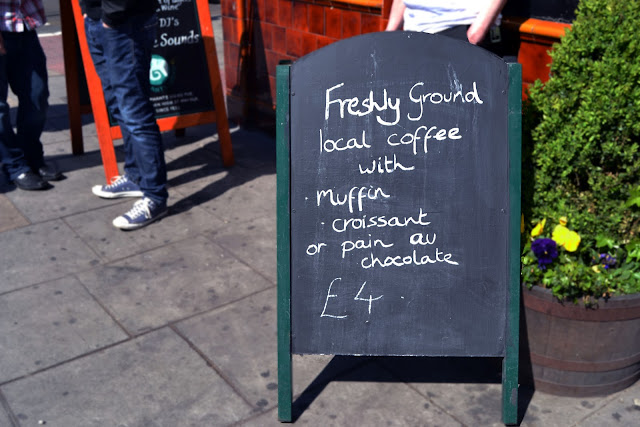 DJ's
Sounds
Freshly Ground
local coffee
with
· muffin
· croissant
or pain au
chocolate
£4